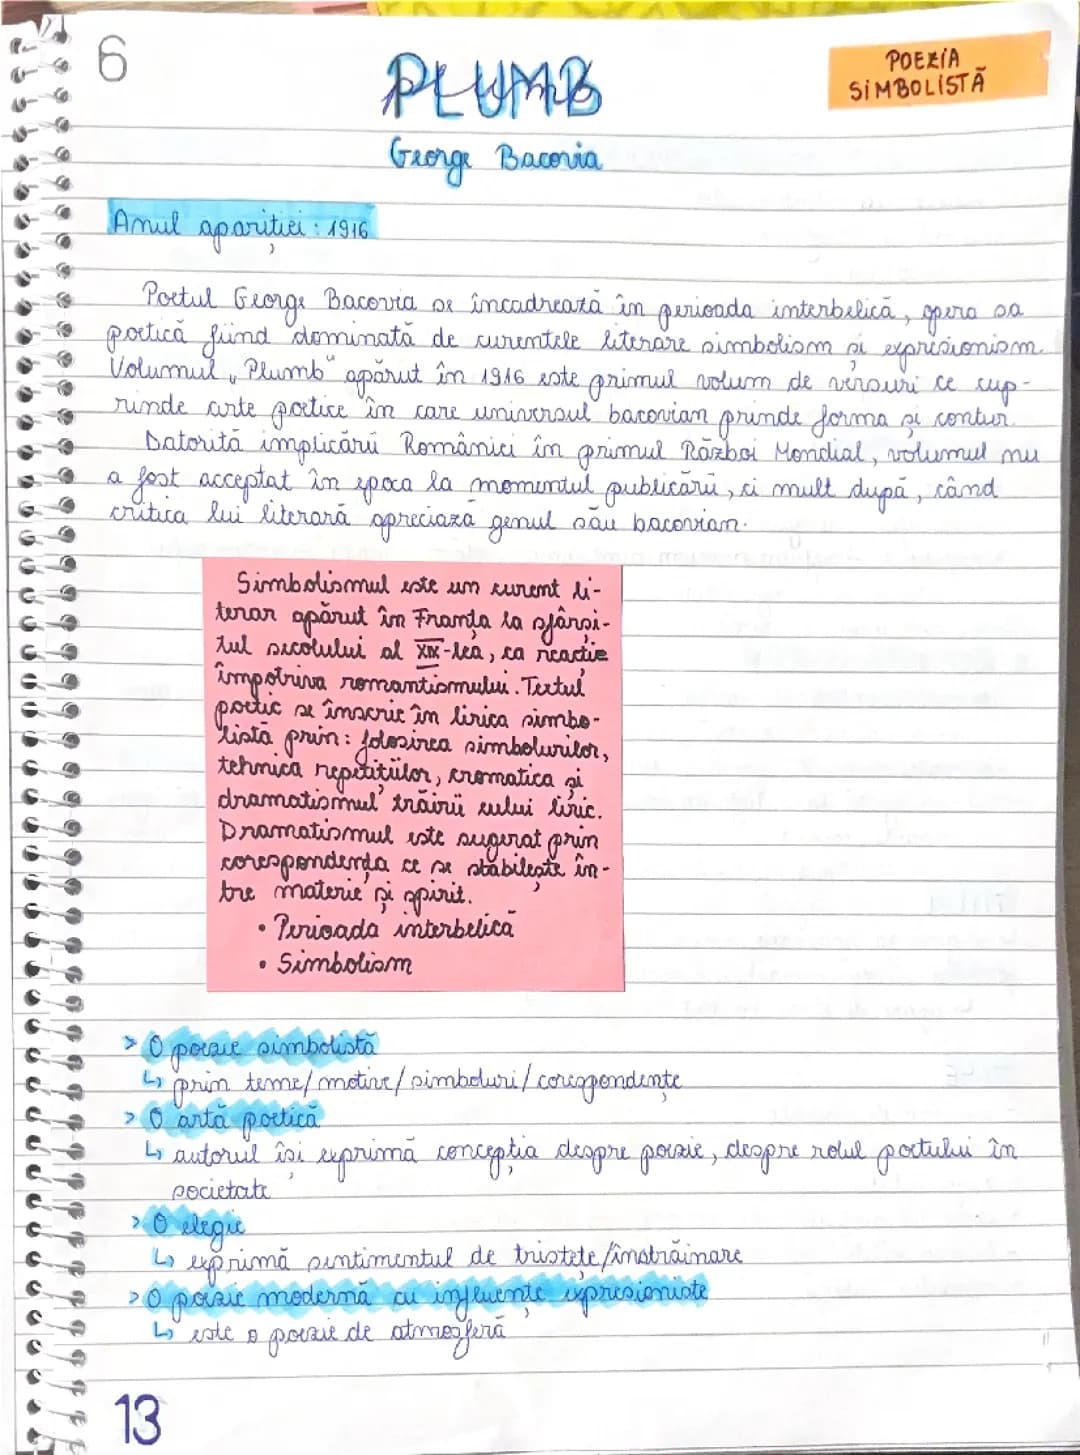 6
PLUMB
POEZIA
SIMBOLISTĂ
George Bacovia
Anul apariției : 1916
Poetul George Bacovia se încadrează în perioada interbelică, opera sa
poetică fiind dominată de curentele literare simbolism și expresionism.
Volumul „Plumb" apărut în 1916 este primul volum de versuri ce cup-
rinde arte poetice în care universul bacovian prinde forma și contur.
Datorită implicării României în primul Război Mondial, volumul nu
a fost acceptat în epoca la momentul publicării, ci mult după, când
critica lui literară apreciază genul său bacovian.
Simbolismul este un curent li-
terar apărut în Franța la sfârși-
tul secolului al XIX-lea, ca reacție
împotriva romantismului. Textul
poetic se înscrie în lirica simbo-
listă prin: folosirea simbolurilor,
tehnica repetițiilor, cromatica și
dramatismul trăirii eului liric.
Dramatismul este sugerat prin
corespondența ce se stabilește în-
tre materie și spirit.
• Perioada interbelică
• Simbolism
> O poezie simbolistă
↳ prin teme/motive/simboluri/corespondențe
> O artă poetică
↳ autorul își exprimă concepția despre poezie, despre rolul poetului în
societate
> O elegie
↳ exprimă sentimentul de tristețe/înstrăinare
> O poezie modernă cu influențe expresioniste
↳ este o poezie de atmosferă
13